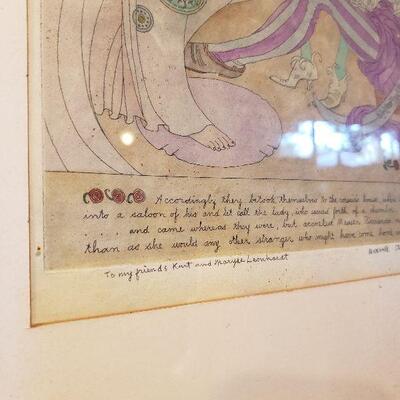 Accordingly they betook themselves to the corsair's house, where
into a saloon of his and let call the lady, who issued forth of a chamber
. . . . and came whereas they were, but accosted Messer Ricciardo no
than as she would any other stranger who might have come home
To my friends Kurt and Maryse Leonhardt